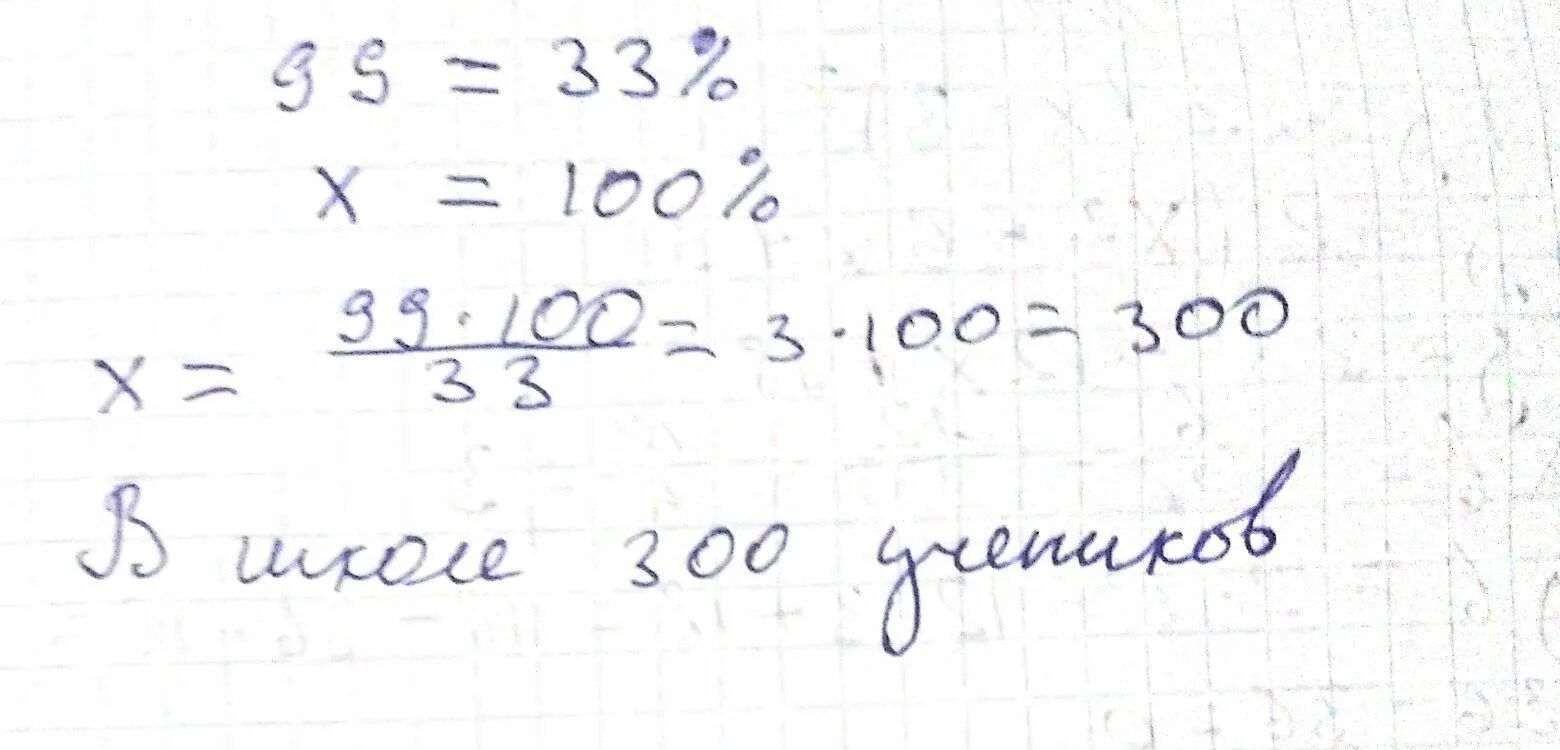 99 = 33%
x = 100%
x = 99·100/33 = 3·100 = 300
В школе 300 учеников